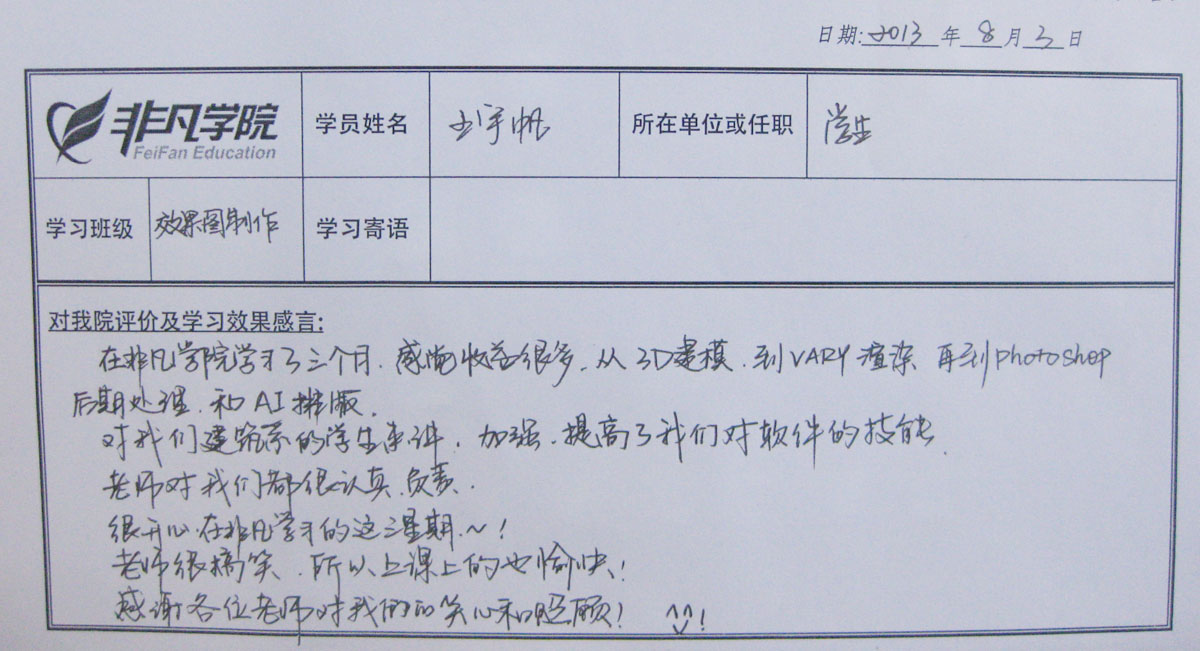 日期: 2013 年 8 月 3 日
非凡学院
FeiFan Education
学员姓名 王宇帆 所在单位或任职 学生
学习班级 效果图制作 学习寄语
对我院评价及学习效果感言:
在非凡学院学习了三个月.感觉收益很多.从3D建模.到VARY渲染 再到photoshop
后期处理.和AI排版.
对我们建筑系的学生来讲.加强.提高了我们对软件的技能.
老师对我们都很认真.负责.
很开心.在非凡学习的这三星期.~!
老师很搞笑.所以上课上的也愉快!
感谢各位老师对我们的关心和照顾! ^^!